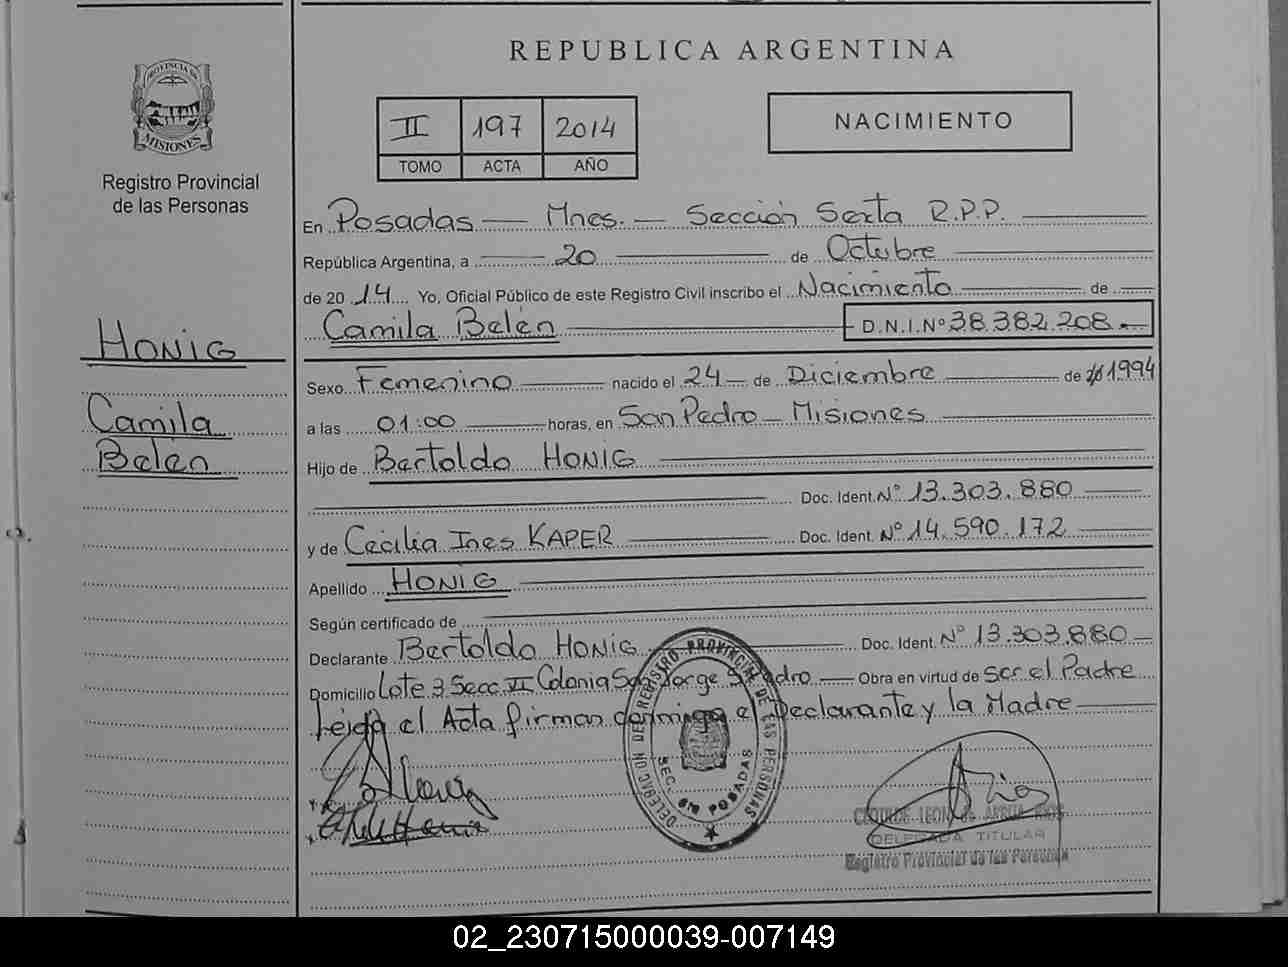 REPUBLICA ARGENTINA
PROVINCIA DE
MISIONES
Registro Provincial
de las Personas
II 197 2014
TOMO ACTA AÑO
NACIMIENTO
En Posadas — Mnes. — Sección Sexta R.P.P.
República Argentina, a 20 de Octubre
de 2014 Yo, Oficial Público de este Registro Civil inscribo el Nacimiento de
Camila Belén D.N.I.Nº 38.382.208.
HONIG
Camila
Belén
Sexo Femenino nacido el 24 de Diciembre de 1994
a las 01:00 horas, en San Pedro — Misiones
Hijo de Bertoldo HONIG
Doc. Ident. Nº 13.303.880
y de Cecilia Ines KAPER Doc. Ident. Nº 14.590.172
Apellido HONIG
Según certificado de
Declarante Bertoldo HONIG Doc. Ident. Nº 13.303.880
Domicilio Lote 3 Secc VI Colonia San Jorge S. Pedro Obra en virtud de ser el Padre
Leída el Acta firman conmigo el Declarante y la Madre
DELEGACION DEL REGISTRO PROVINCIAL DE LAS PERSONAS
SEC. 6ta POSADAS
DELEGADA TITULAR
Registro Provincial de las Personas
02_230715000039-007149